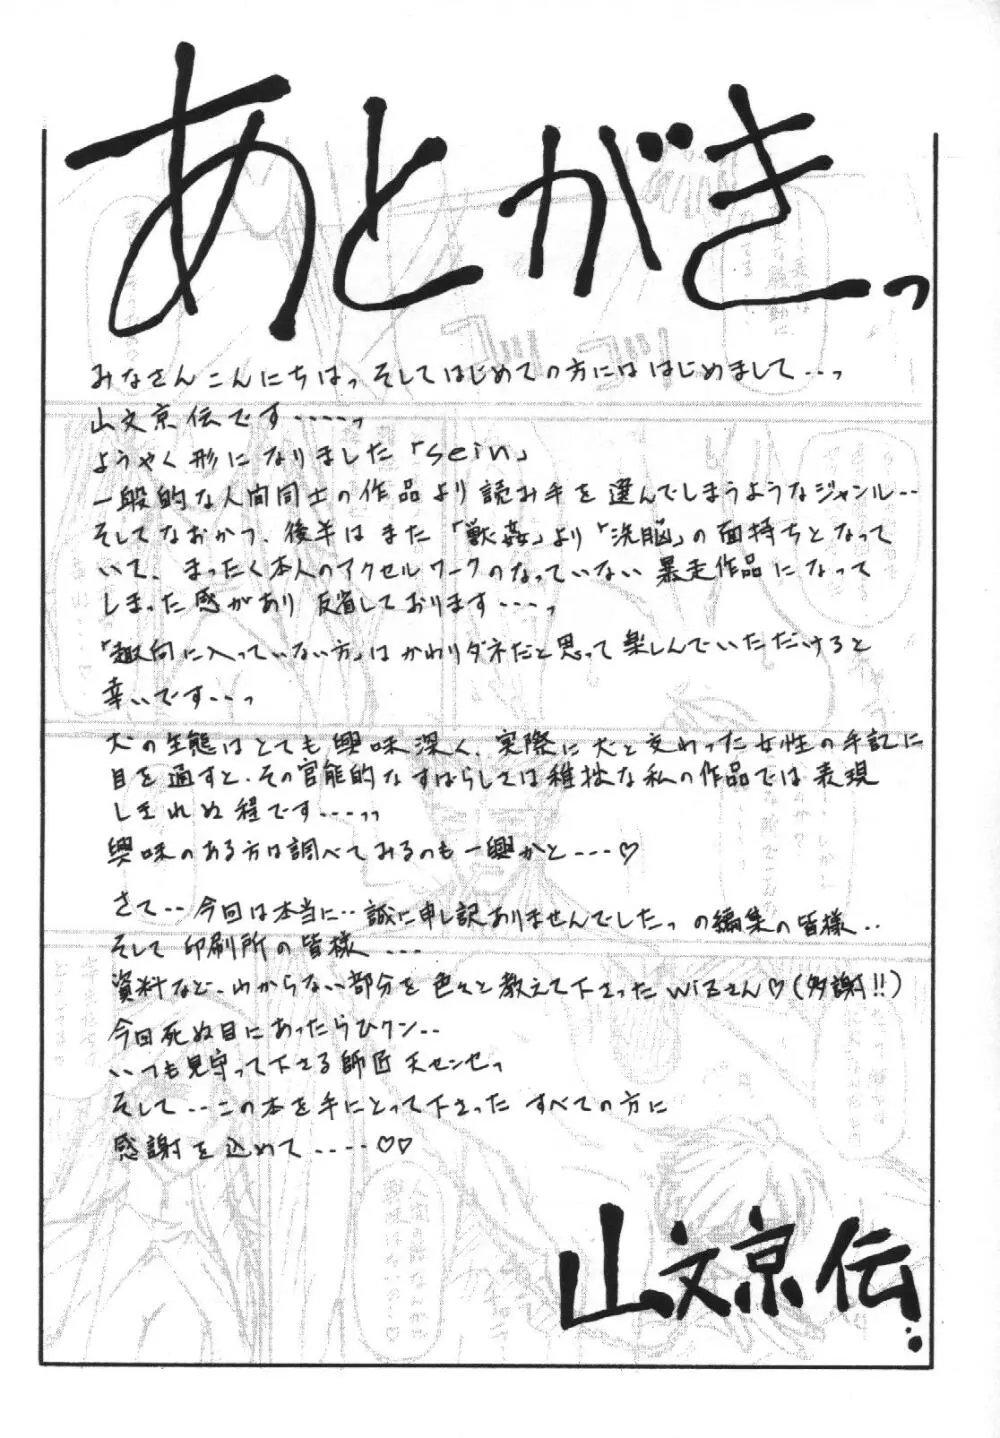 あとがきっ
みなさんこんにちはっ そしてはじめての方にははじめまして...っ
山文京伝です....っ
ようやく形になりました「sein」
一般的な人間同士の作品より読み手を選んでしまうようなジャンル..
そしてなおかつ、後半はまた「獣姦」より「洗脳」の面持ちとなって
いて、まったく本人のアクセルワークのなっていない暴走作品になって
しまった感があり 反省しております....っ
「趣向に入っていない方」はかわりダネだと思って楽しんでいただけると
幸いです...っ
犬の生態はとても興味深く、実際に犬と交わった女性の手記に
目を通すと、その官能的なすばらしさは稚拙な私の作品では表現
しきれぬ程です...っっ
興味のある方は調べてみるのも一興かと...♡
さて.. 今回は本当に..誠に申し訳ありませんでしたっ の編集の皆様..
そして印刷所の皆様 ...
資料など、わからない部分を色々と教えて下さったwizさん♡(多謝!!)
今回死ぬ目にあったらひクン..
いつも見守って下さる師匠 天センセっ
そして..この本を手にとって下さった すべての方に
感謝を込めて....♡♡
山文京伝